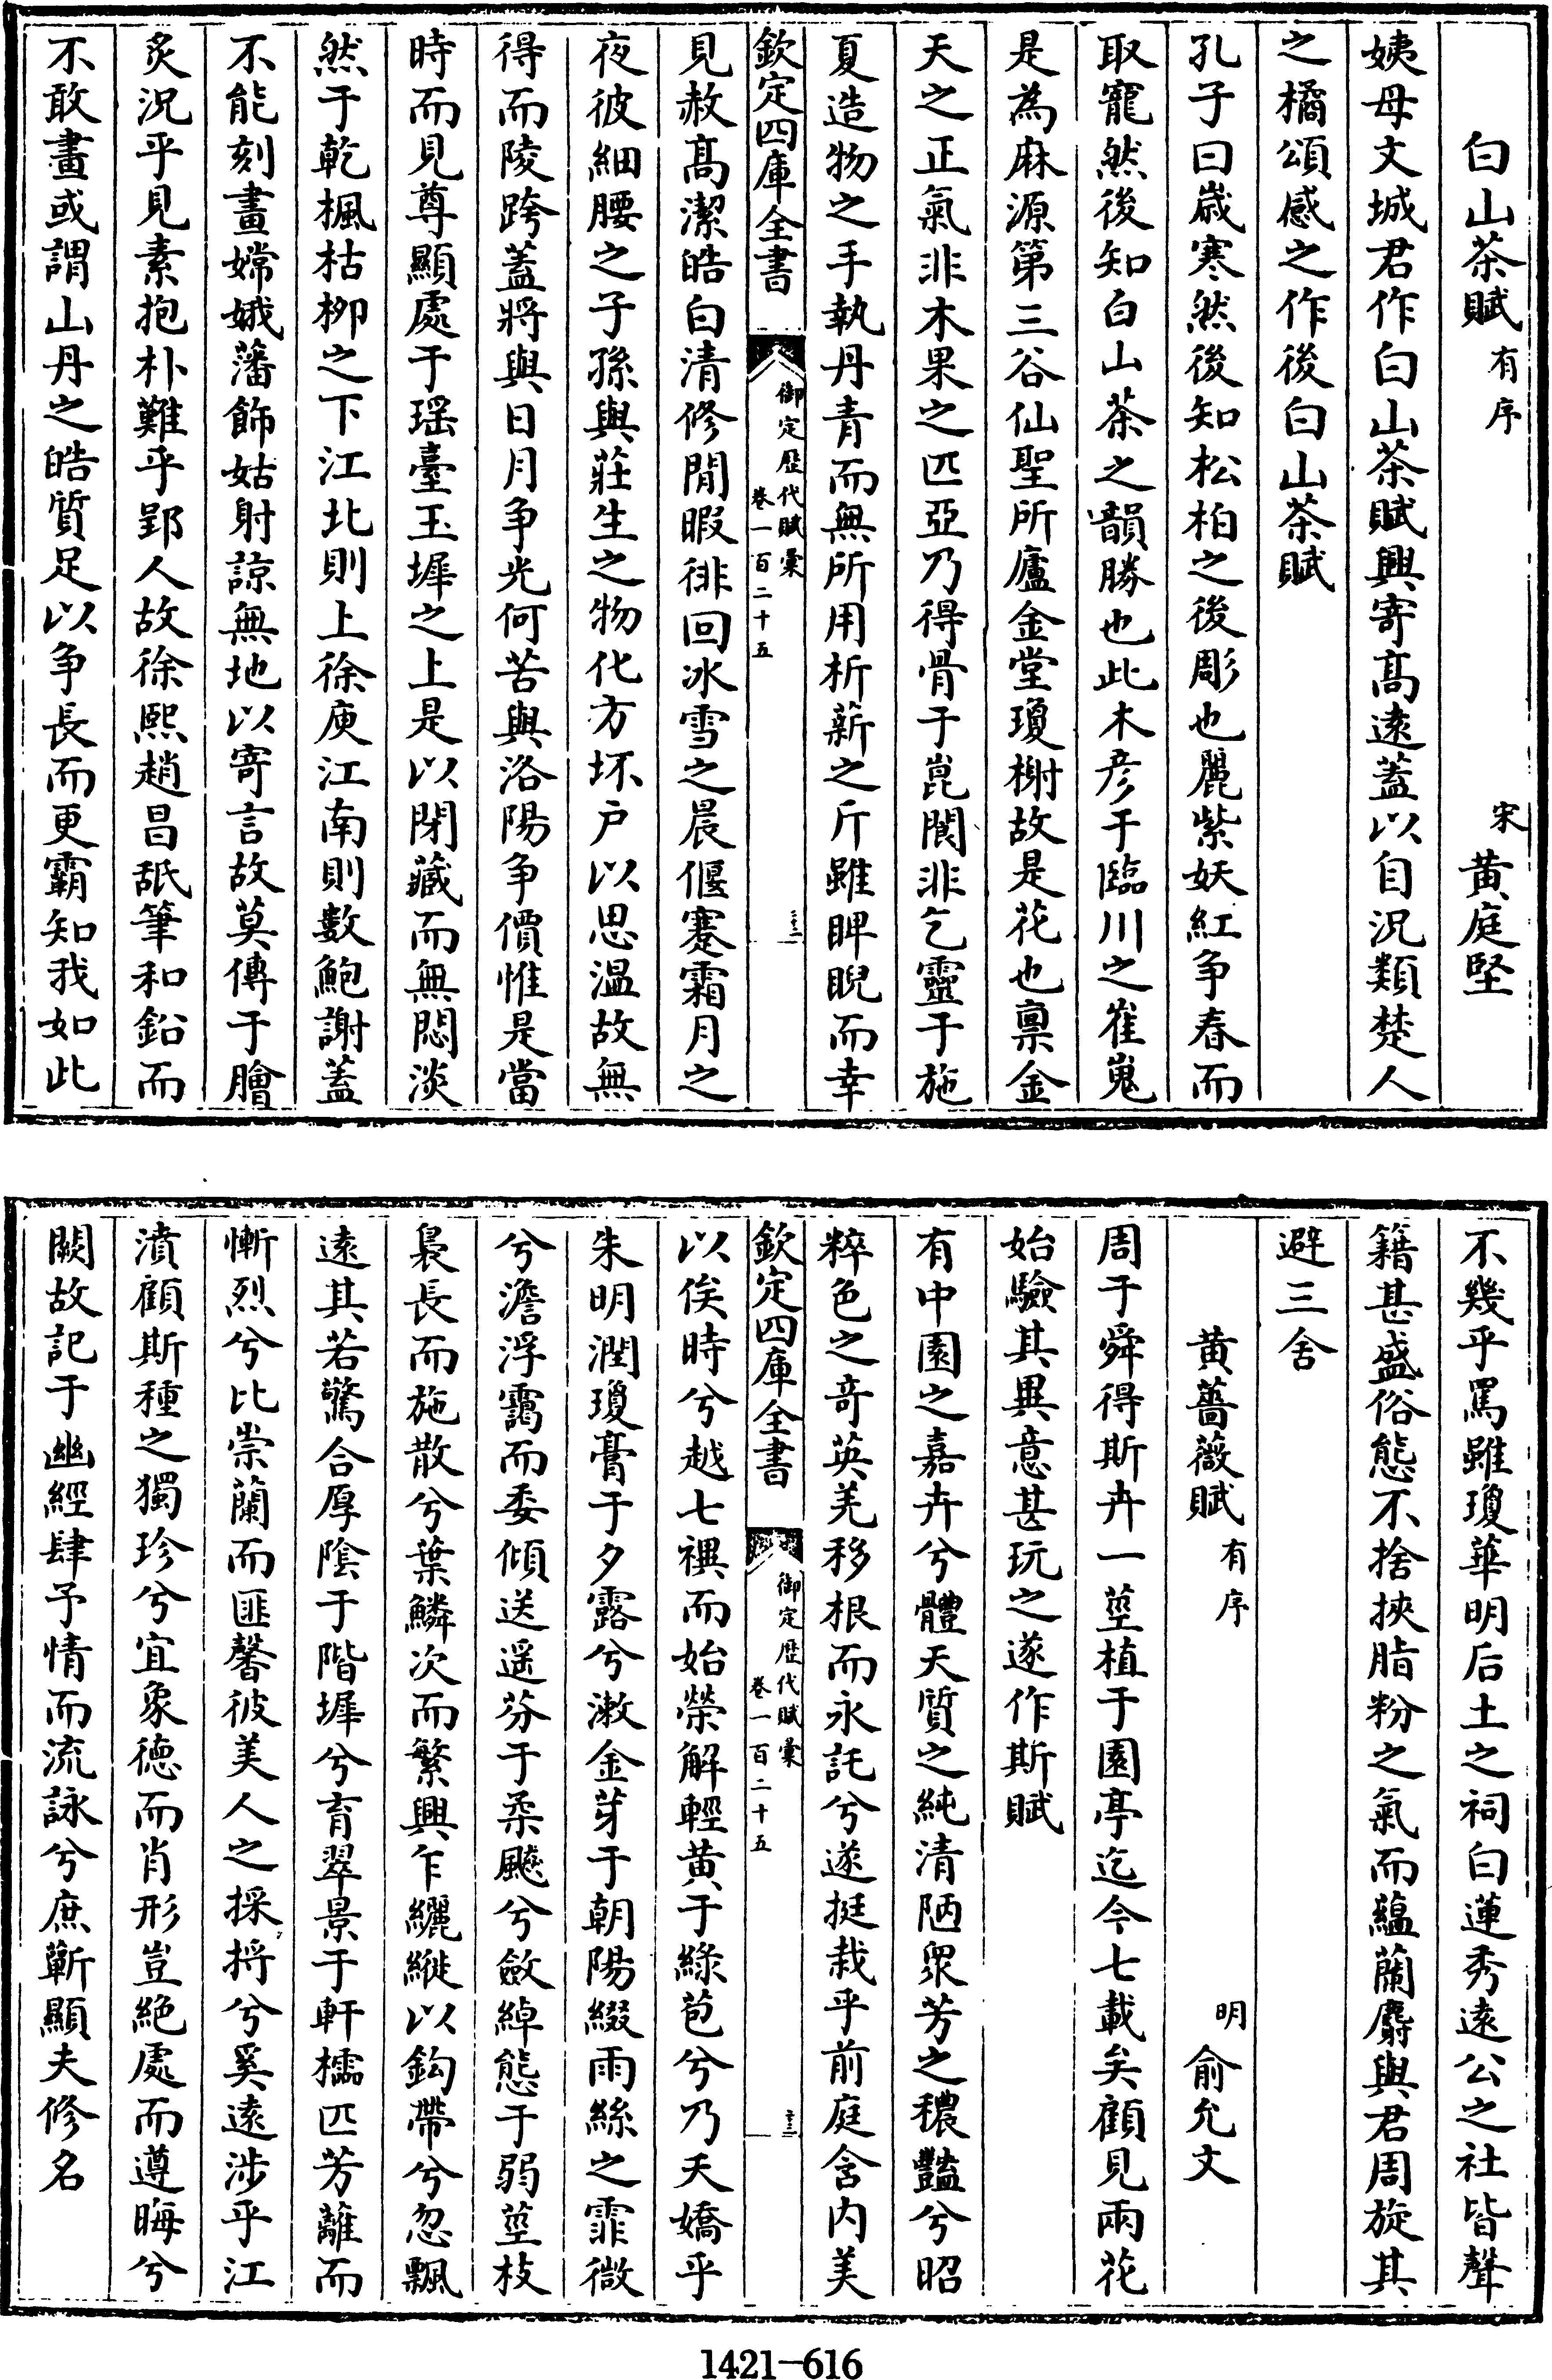 白山茶賦有序 宋 黄庭堅
姨母文城君作白山茶賦興寄髙逺蓋以自況類楚人
之橘頌感之作後白山茶賦
孔子曰歳寒然後知松柏之後彫也麗紫妖紅争春而
取寵然後知白山茶之韻勝也此木彦于臨川之崔嵬
是為麻源第三谷仙聖所廬金堂瓊榭故是花也禀金
天之正氣非木果之匹亞乃得骨于崑閬非乞靈于施
夏造物之手執丹青而無所用析薪之斤雖睥睨而幸
欽定四庫全書
御定歴代賦彙
卷一百二十五
見赦髙潔皓白清修閒暇徘回冰雪之晨偃蹇霜月之
夜彼細腰之子孫與莊生之物化方坏户以思温故無
得而陵跨蓋將與日月争光何苦與洛陽争價惟是當
時而見尊顯處于瑶臺玉墀之上是以閉藏而無悶淡
然于乾楓枯桺之下江北則上徐庾江南則數鮑謝蓋
不能刻畫嫦娥藩飾姑射諒無地以寄言故莫傳于膾
炙況乎見素抱朴難乎郢人故徐熙趙昌舐筆和鉛而
不敢畫或謂山丹之皓質足以争長而更霸知我如此
不幾乎罵雖瓊華明后土之祠白蓮秀逺公之社皆聲
籍甚盛俗態不捨挾脂粉之氣而藴蘭麝與君周旋其
避三舍
黄薔薇賦有序 明 俞允文
周于舜得斯卉一莖植于園亭迄今七載矣顧見兩花
始驗其異意甚玩之遂作斯賦
有中園之嘉卉兮體天質之純清陋衆芳之穠豔兮昭
粹色之竒英羌移根而永託兮遂挺栽乎前庭含内美
欽定四庫全書
御定歴代賦彙
卷一百二十五
以俟時兮越七禩而始榮解輕黄于綠苞兮乃夭嬌乎
朱明潤瓊膏于夕露兮漱金芽于朝陽綴雨絲之霏微
兮澹浮靄而委傾送遥芬于柔颸兮斂綽態于弱莖枝
裊長而施散兮葉鱗次而繁興乍纚縰以鈎帶兮忽飄
逺其若驚合厚陰于階墀兮育翠景于軒櫺匹芳蘺而
慚烈兮比崇蘭而匪馨彼美人之採捋兮奚逺涉乎江
濆顧斯種之獨珍兮宜象徳而肖形豈絶處而遵晦兮
闕故記于幽經肆予情而流詠兮庶蘄顯夫修名
1421-616